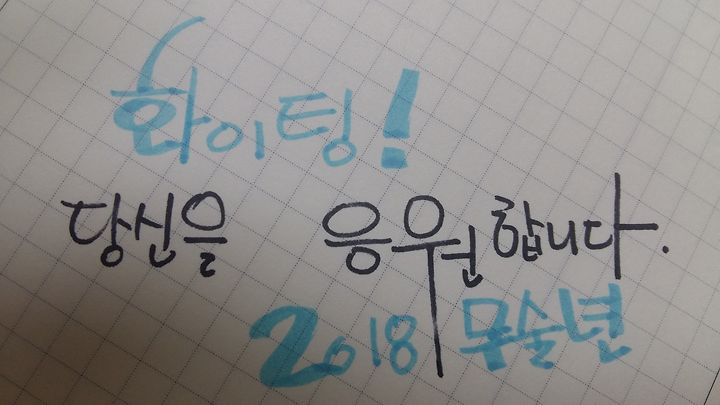 화이팅!
당신을 응원합니다.
2018 무술년